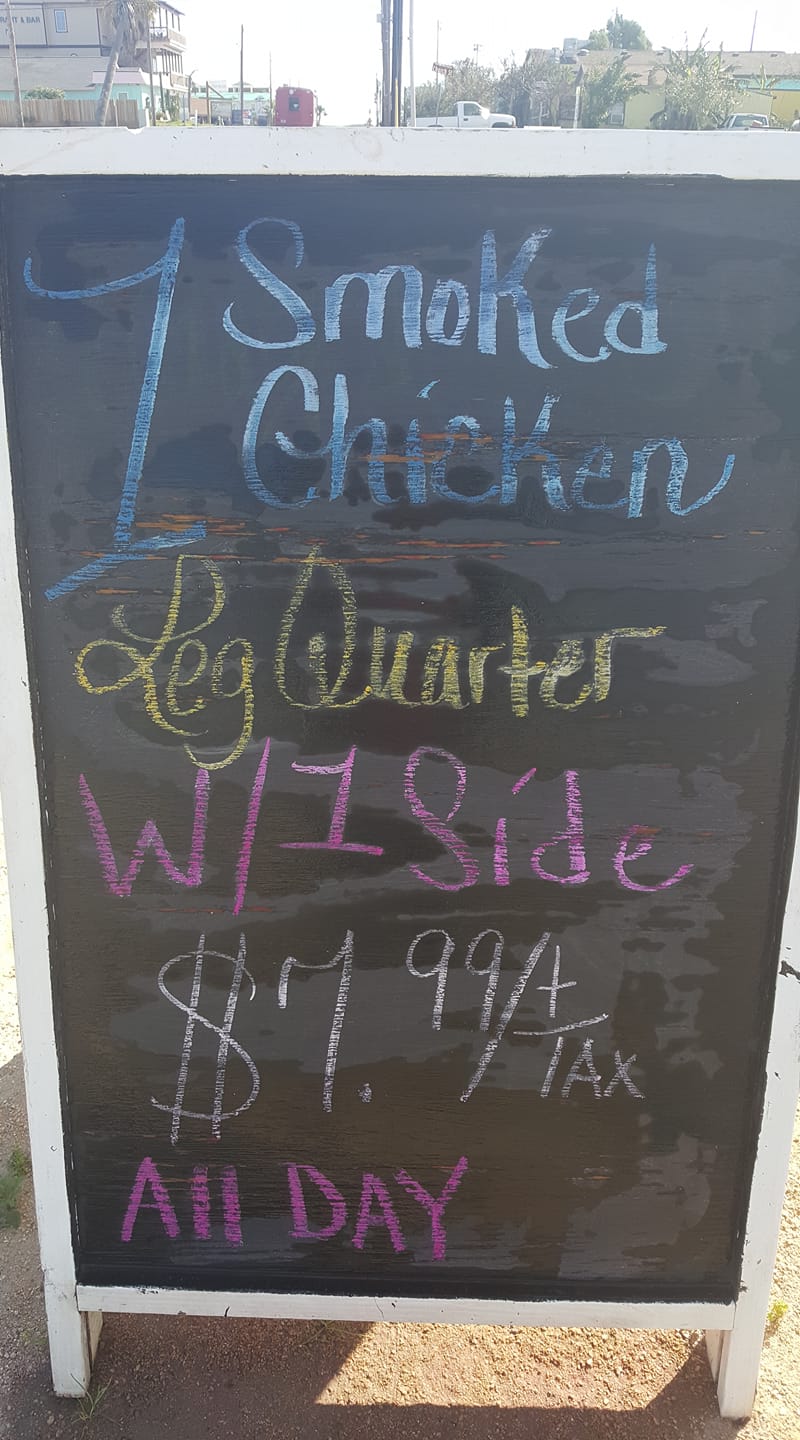 & BAR
1 Smoked
Chicken
Leg Quarter
W/1 Side
$7.99/+
TAX
All DAY